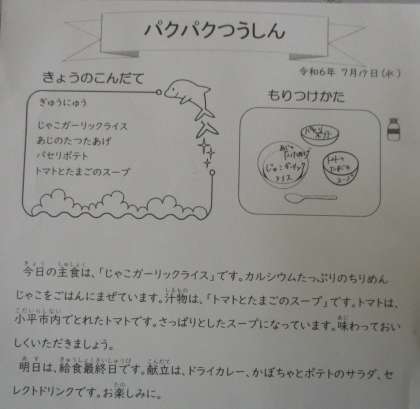 パクパクつうしん
令和6年 7月17日(水)
きょうのこんだて
ぎゅうにゅう
じゃこガーリックライス
あじのたつたあげ
パセリポテト
トマトとたまごのスープ
もりつけかた
パセリポテト
あじのたつたあげ
じゃこガーリックライス
トマトとたまごのスープ
今日の主食は、「じゃこガーリックライス」です。カルシウムたっぷりのちりめん
じゃこをごはんにまぜています。汁物は、「トマトとたまごのスープ」です。トマトは、
小平市内でとれたトマトです。さっぱりとしたスープになっています。味わっておい
しくいただきましょう。
明日は、給食最終日です。献立は、ドライカレー、かぼちゃとポテトのサラダ、セ
レクトドリンクです。お楽しみに。